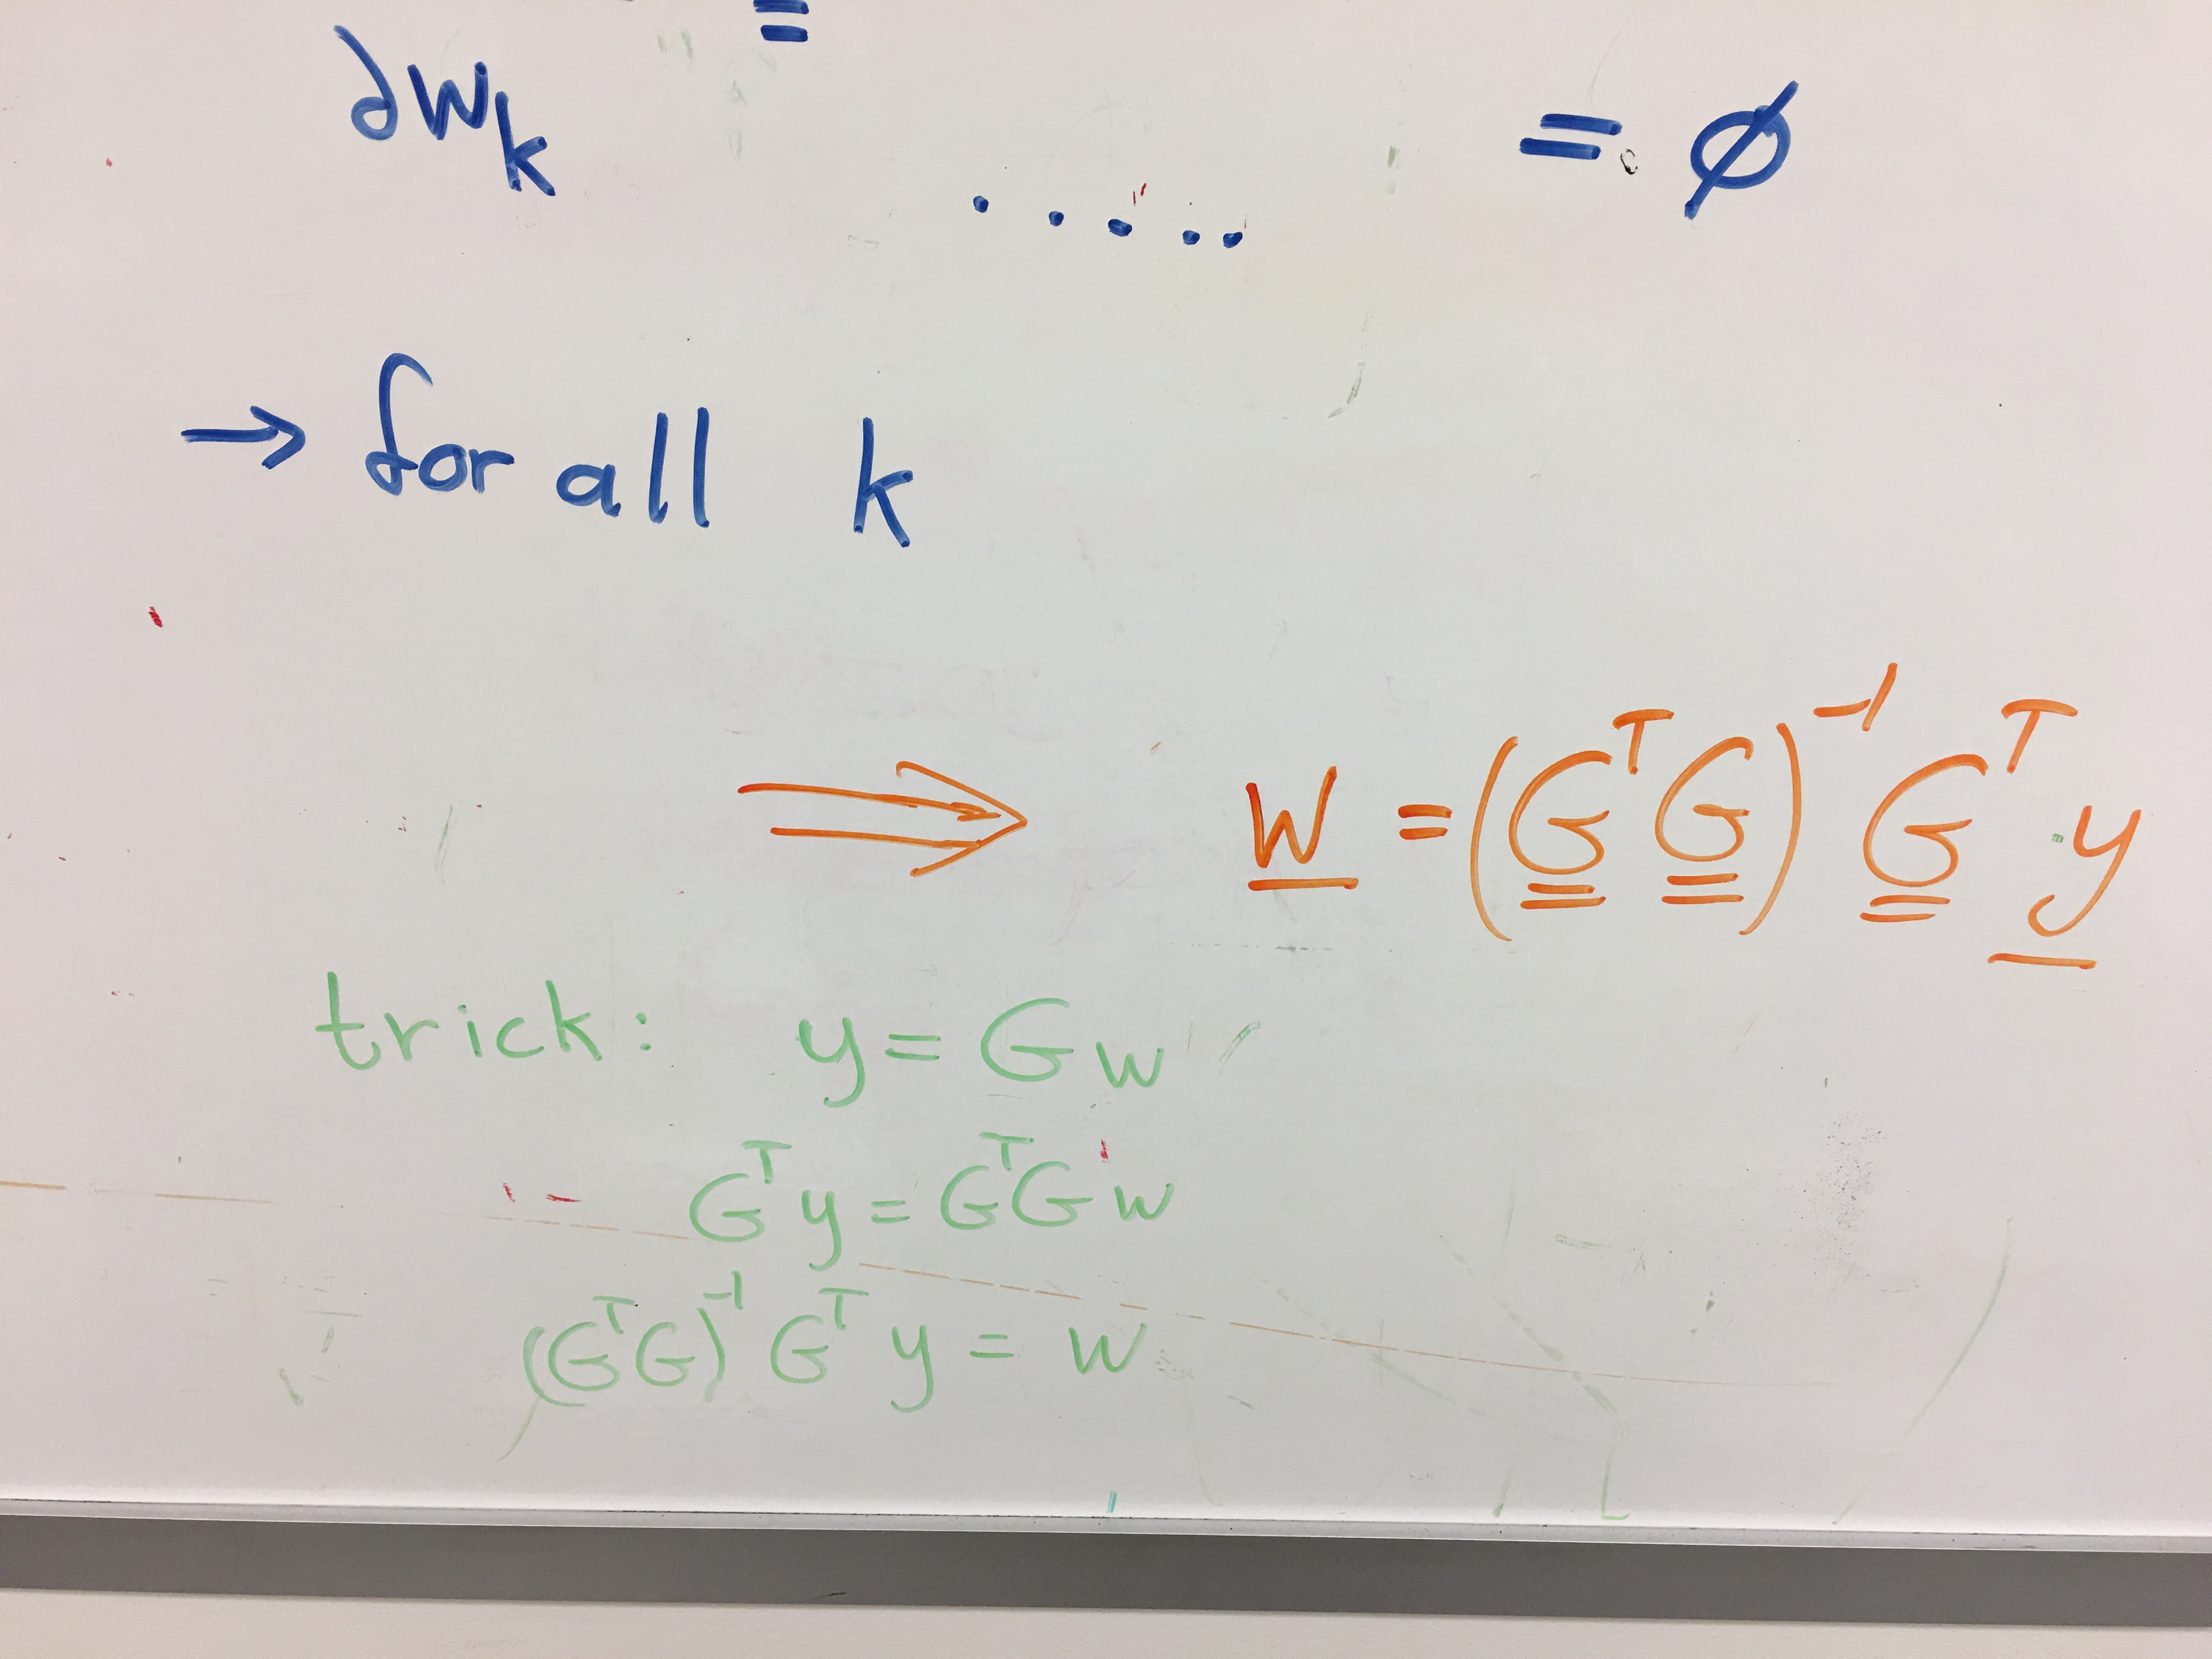 ∂w_k =
..... = ∅
→ for all k
⟹ w = (GᵀG)⁻¹ Gᵀ · y
trick: y = Gw
Gᵀy = GᵀGw
(GᵀG)⁻¹ Gᵀ y = w